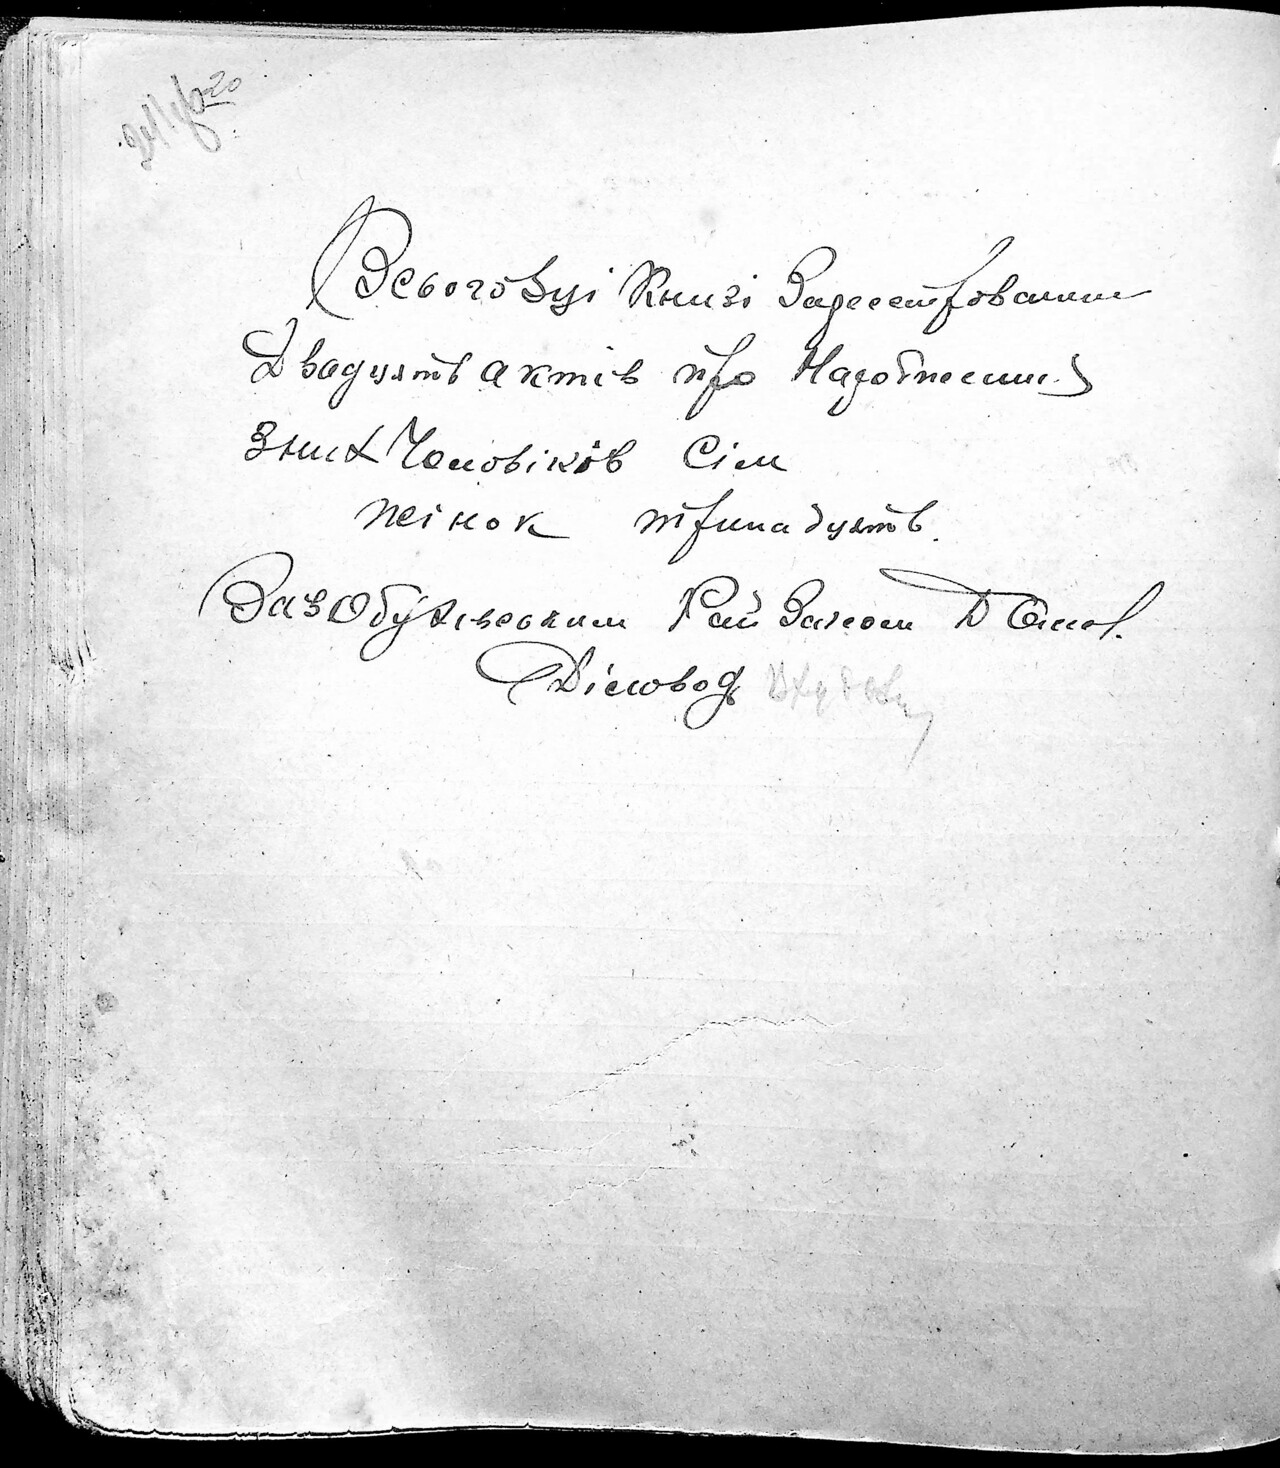 Всього в ці Книзі Зареєстрованим
Двадцять актів про Народження
З них Чоловіків Сім
жінок тринадцять.
Зав Обухівським Рай Загсом
Діловод